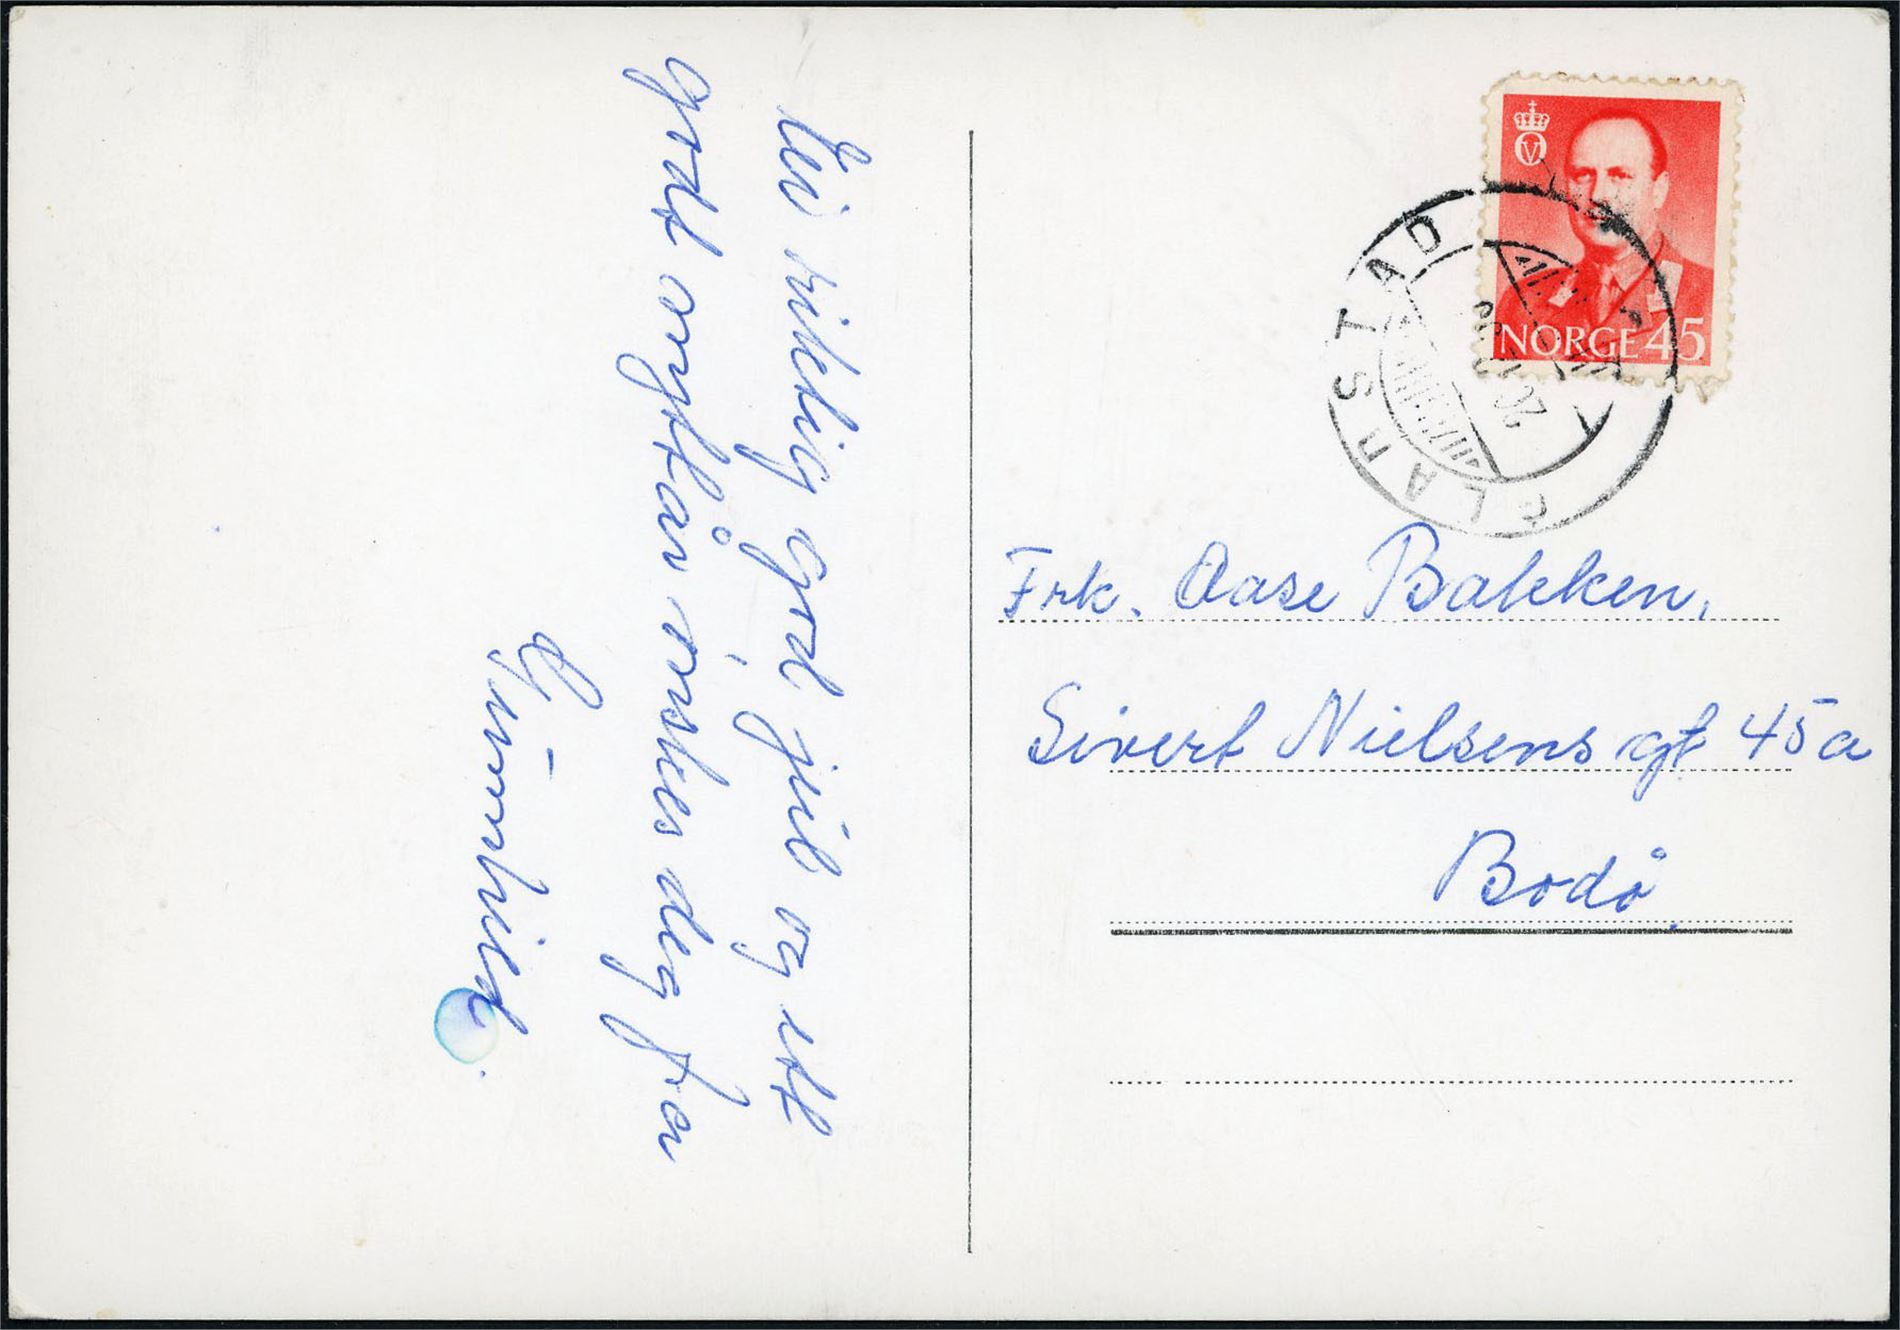 En riktig god jul og ett
godt nyttår ønskes deg fra
Gunnhild.
NORGE 45
Frk. Aase Bakken,
Sivert Nielsens gt 45a
Bodø